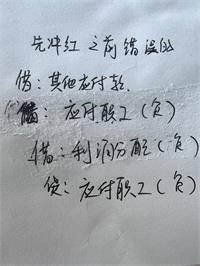 先冲红之前错误的
借:其他应付款.
借:应付职工(负)
借:利润分配(负)
贷:应付职工(负)